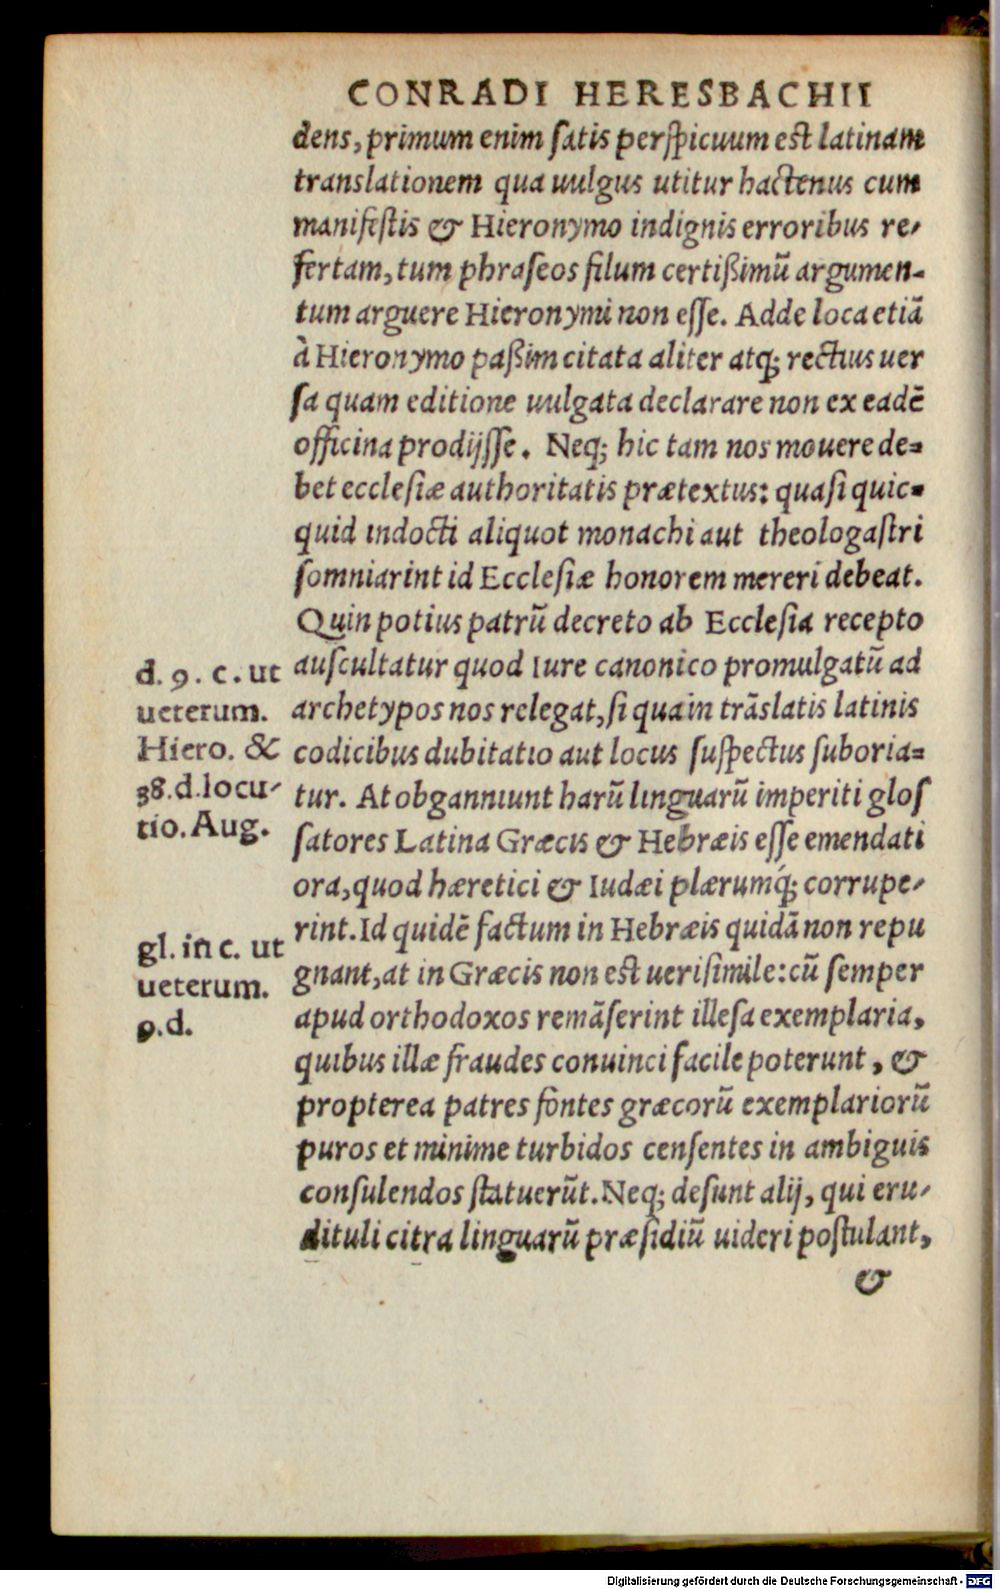 CONRADI HERESBACHII
dens, primum enim ſatis perſpicuum est latinam
translationem qua uulgus utitur hactenus cum
manifeſtis & Hieronymo indignis erroribus re-
fertam, tum phraſeos filum certißimũ argumen-
tum arguere Hieronymi non eſſe. Adde loca etiã
à Hieronymo paßim citata aliter atq; rectius uer
ſa quam editione uulgata declarare non ex eadẽ
officina prodijſſe. Neq; hic tam nos mouere de-
bet eccleſiæ authoritatis prætextus: quaſi quic-
quid indocti aliquot monachi aut theologaſtri
ſomniarint id Eccleſiæ honorem mereri debeat.
Quin potius patrũ decreto ab Eccleſia recepto
auſcultatur quod Iure canonico promulgatũ ad
archetypos nos relegat, ſi qua in trãslatis latinis
codicibus dubitatio aut locus ſuſpectus suboria-
tur. At obganniunt harũ linguarũ imperiti gloſ
ſatores Latina Græcis & Hebræis eſſe emendati
ora, quod hæretici & Iudæi plærumq́; corrupe-
rint. Id quidẽ factum in Hebræis quidã non repu
gnant, at in Græcis non est ueriſimile: cũ ſemper
apud orthodoxos remãſerint illeſa exemplaria,
quibus illæ fraudes conuinci facile poterunt, &
propterea patres fontes græcorũ exemplariorũ
puros et minime turbidos cenſentes in ambiguis
conſulendos ſtatuerũt. Neq; deſunt alij, qui eru-
dituli citra linguarũ præſidiũ uideri poſtulant,
&
d. 9. c. ut
ueterum.
Hiero. &
38. d. locu-
tio. Aug.
gl. in c. ut
ueterum.
9. d.
Digitalisierung gefördert durch die Deutsche Forschungsgemeinschaft - DFG